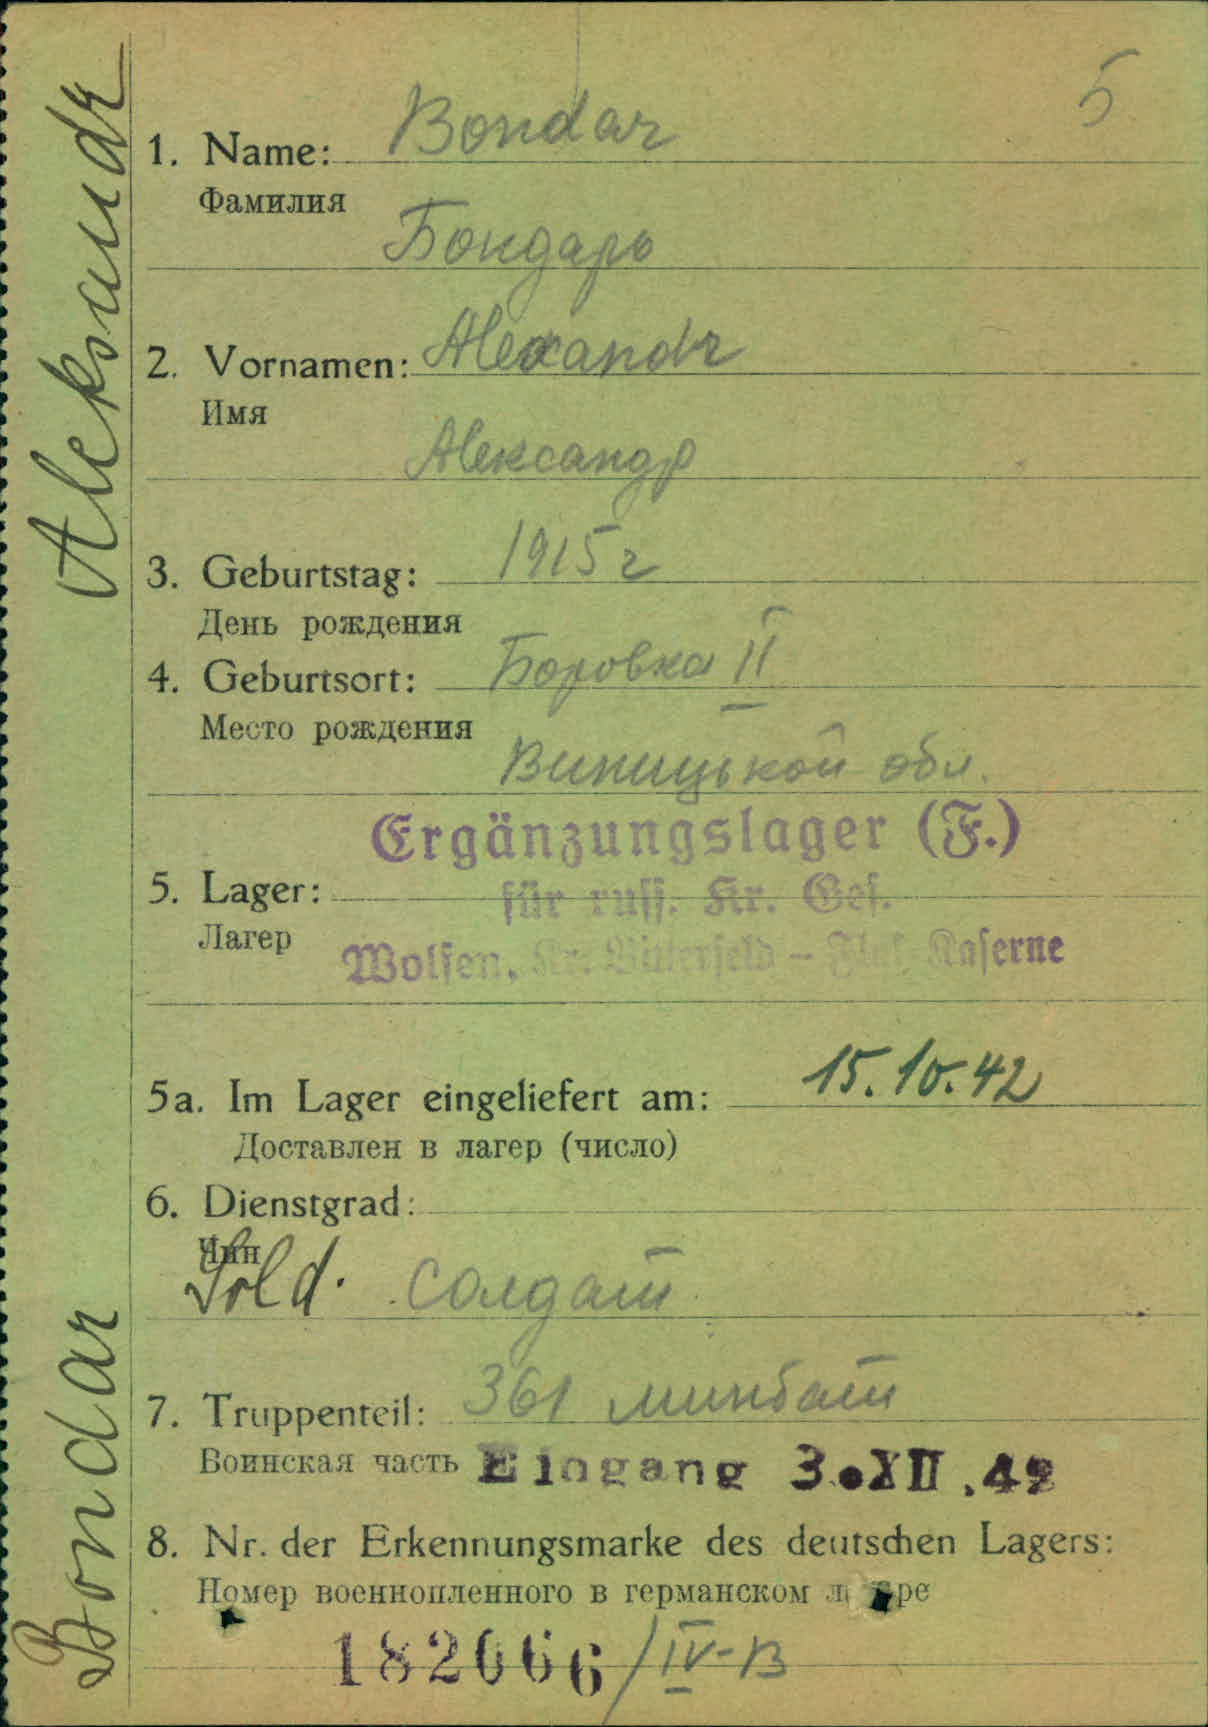 5
1. Name: Bondar
Фамилия
Бондарь
2. Vornamen: Alexandr
Имя
Александр
3. Geburtstag: 1915 г
День рождения
4. Geburtsort: Боровка II
Место рождения
Виницькой обл.
Ergänzungslager (F.)
5. Lager: für russ. Kr. Gef.
Лагер
Wolfen, Kr. Bitterfeld – Flak Kaserne
5a. Im Lager eingeliefert am: 15.10.42
Доставлен в лагер (число)
6. Dienstgrad:
Чин
Sold. солдат
7. Truppenteil: 361 минбат
Воинская часть Eingang 3.XII.42
8. Nr. der Erkennungsmarke des deutschen Lagers:
Номер военнопленного в германском лагере
182666/IV-B
Bondar Aleksandr